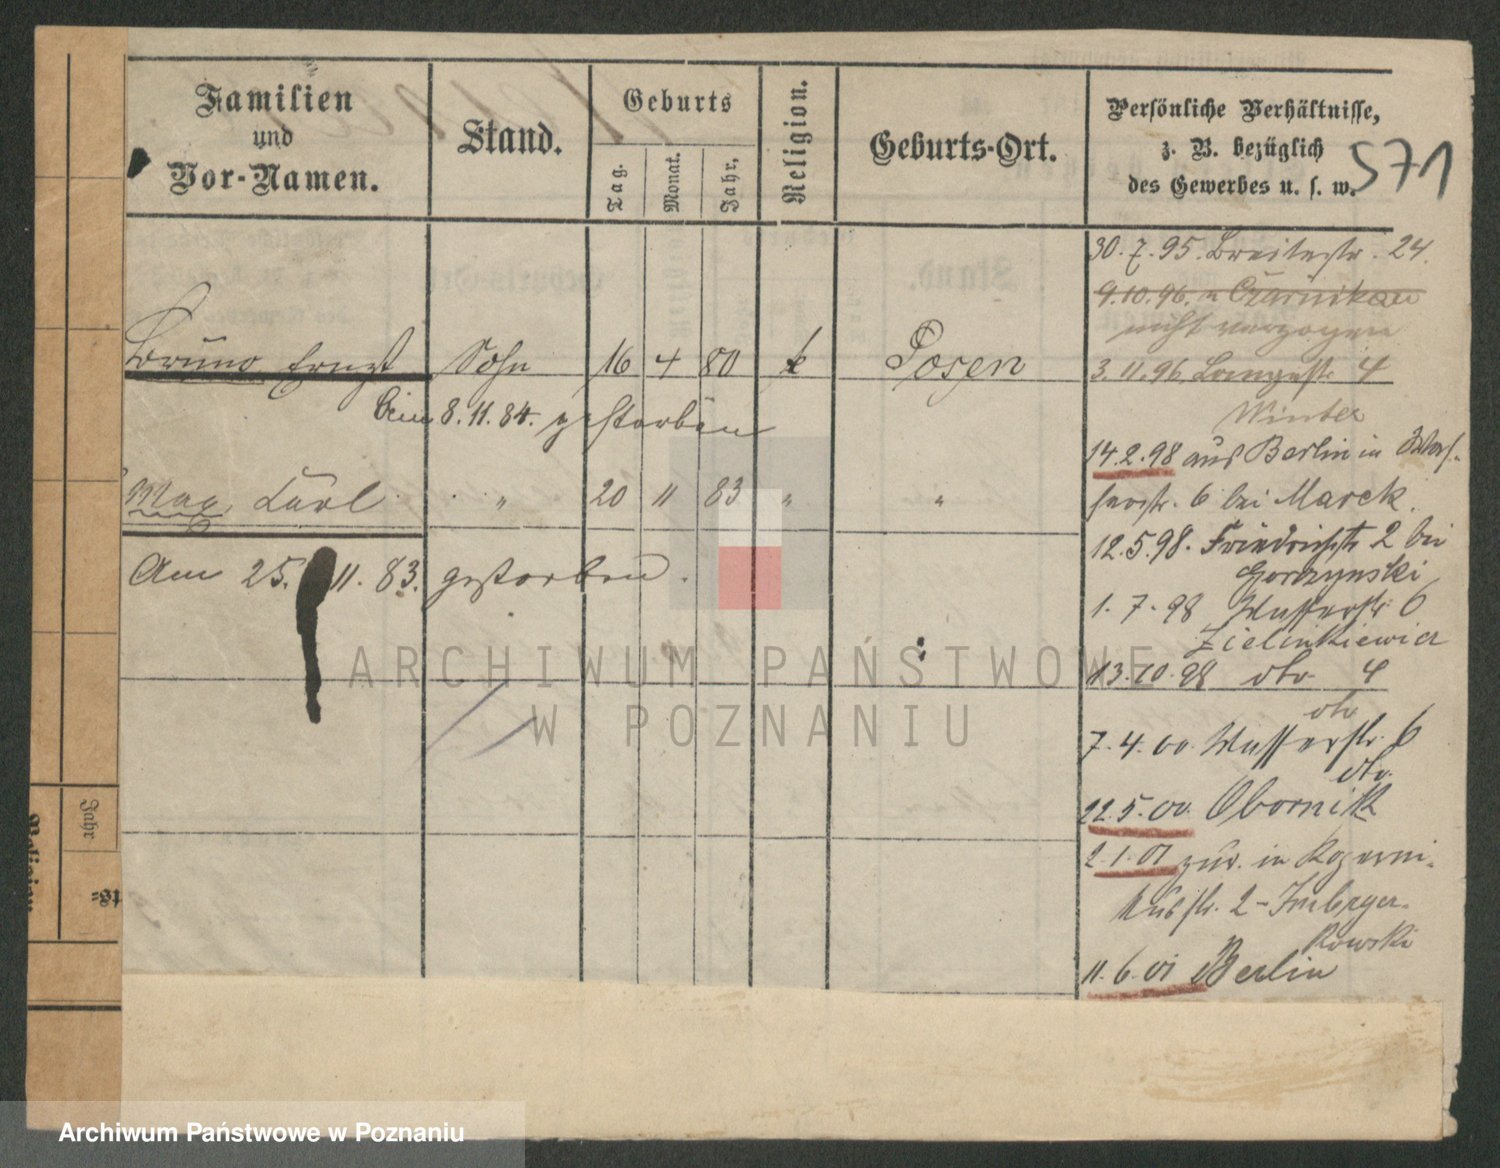 Familien
und
Vor-Namen.
Stand.
Geburts
Tag.
Monat.
Jahr.
Religion.
Geburts-Ort.
Persönliche Verhältnisse,
z. B. bezüglich
des Gewerbes u. s. w.
571
Bruno Ernst Sohn 16 4 80 k Posen
8.11.84. gestorben
Max, Karl " 20 11 83 " "
Am 25. 11. 83. gestorben.
30.7.95. Breitestr. 24.
9.10.96. n Czarnikau
nicht verzogen
3.11.96 Langestr. 4
Winter
14.2.98 aus Berlin in Was-
serstr. 6 bei Marek.
12.5.98. Friedrichstr 2 bei
Gorzynski
1.7.98 Wasserstr 6
Zielinkiewicz
13.10.98 dto. 4
dto
7.4.00. Wasserstr. 6
dto.
22.5.00. Obornik
2.1.01 zur. in
str. 2 -
kowski
11.6.01 Berlin
Jahr
Religion
ts=
ARCHIWUM PAŃSTWOWE
W POZNANIU
Archiwum Państwowe w Poznaniu